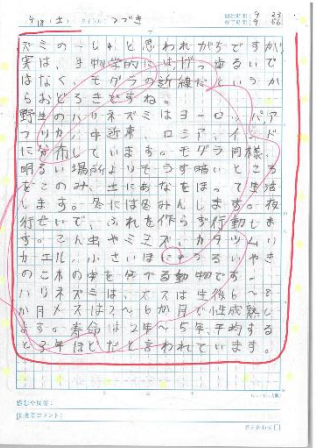 9/18(土) つづき
ズミの一しゅと思われがちですが
実は、生物学的にはげっ歯るいで
はなく、モグラの近縁だというか
らおどろきですね。
野生のハリネズミはヨーロッパア
フリカ、中近東、ロシア、インド
に分布しています。モグラ同様、
明るい場所よりもうす暗いところ
をこのみ、土にあなをほって生活
します。冬には冬みんします。夜
行せいで、ふれを作らず行動しま
す。こん虫やミミズ、カタツムリ
カエル、小さいほにゅうるいやき
のこ木の実を食べる動物です。
ハリネズミは、オスは生後6〜8
か月メスは2〜6か月で性成熟し
ます。寿命は2年〜5年、平均する
と3年ほどだと言われています。
感じや反省: